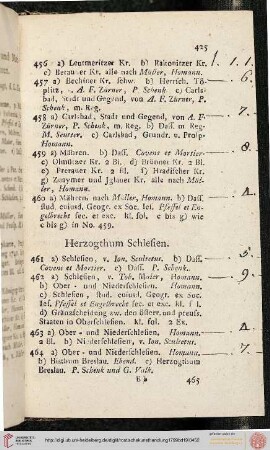 425
456 a) Leutmeritzer Kr. b) Rakonitzer Kr.
c) Berauner Kr. alle nach Müller, Homann.
457 a) Bechiner Kr. b) Herrsch. Tö-
plitz, v. A. F. Zürner, P. Schenk. c) Carls-
bad, Stadt und Gegend, von A. F. Zürner, P.
Schenk, m. Reg.
458 a) Carlsbad, Stadt und Gegend, von A. F.
Zürner, P. Schenk, m. Reg. b) Dass. m Reg-
M. Seutter. c) Carlsbad, Grundr. u. Prosp.
Homann.
459 a) Mähren. b) Dass. Covens et Mortier.
c) Olmützer Kr. 2 Bl. d) Brünner Kr. 2 Bl.
e) Prerauer Kr. 2 Bl. f) Hradischer Kr.
g) Znaymer und Iglauer Kr. alle nach Mül-
ler, Homann.
460 a) Mähren, nach Müller, Homann. b) Dass.
stud. cuiusd. Geogr. ex Soc. Iesf. Pfeffel et En-
gelbrecht sec. et exc. kl. fol. c bis g) wie
c bis g) in No. 459.
Herzogthum Schlesien.
461 a) Schlesien, v. Ion. Scultetus. b) Dass.
Covens et Mortier. c) Dass. P. Schenk.
462 a) Schlesien, v. Tob. Mader, Homann.
b) Ober- und Niederschlesien. Homann.
c) Schlesien, stud. cuiusd. Geogr. ex Soc.
Ief. Pfeffel et Engelbrecht sec. et exc. kl. f l.
d) Gränzscheidung zw. den österr. und preuss.
Staaten in Oberschlesien. kl. fol. 2 Ex.
463 a) Ober- und Niederschlesien, Homann.
2 Bl. b) Niederschlesien, v. Ion. Scultetus.
464 a) Ober- und Niederschlesien. Homann.
b) Bisthum Breslau. Ebend. c) Herzogthum
Breslau. P. Schenk und G. Valk.
465
1. 1.
6.
7.
8.
4.
5.
9.
4.
7.